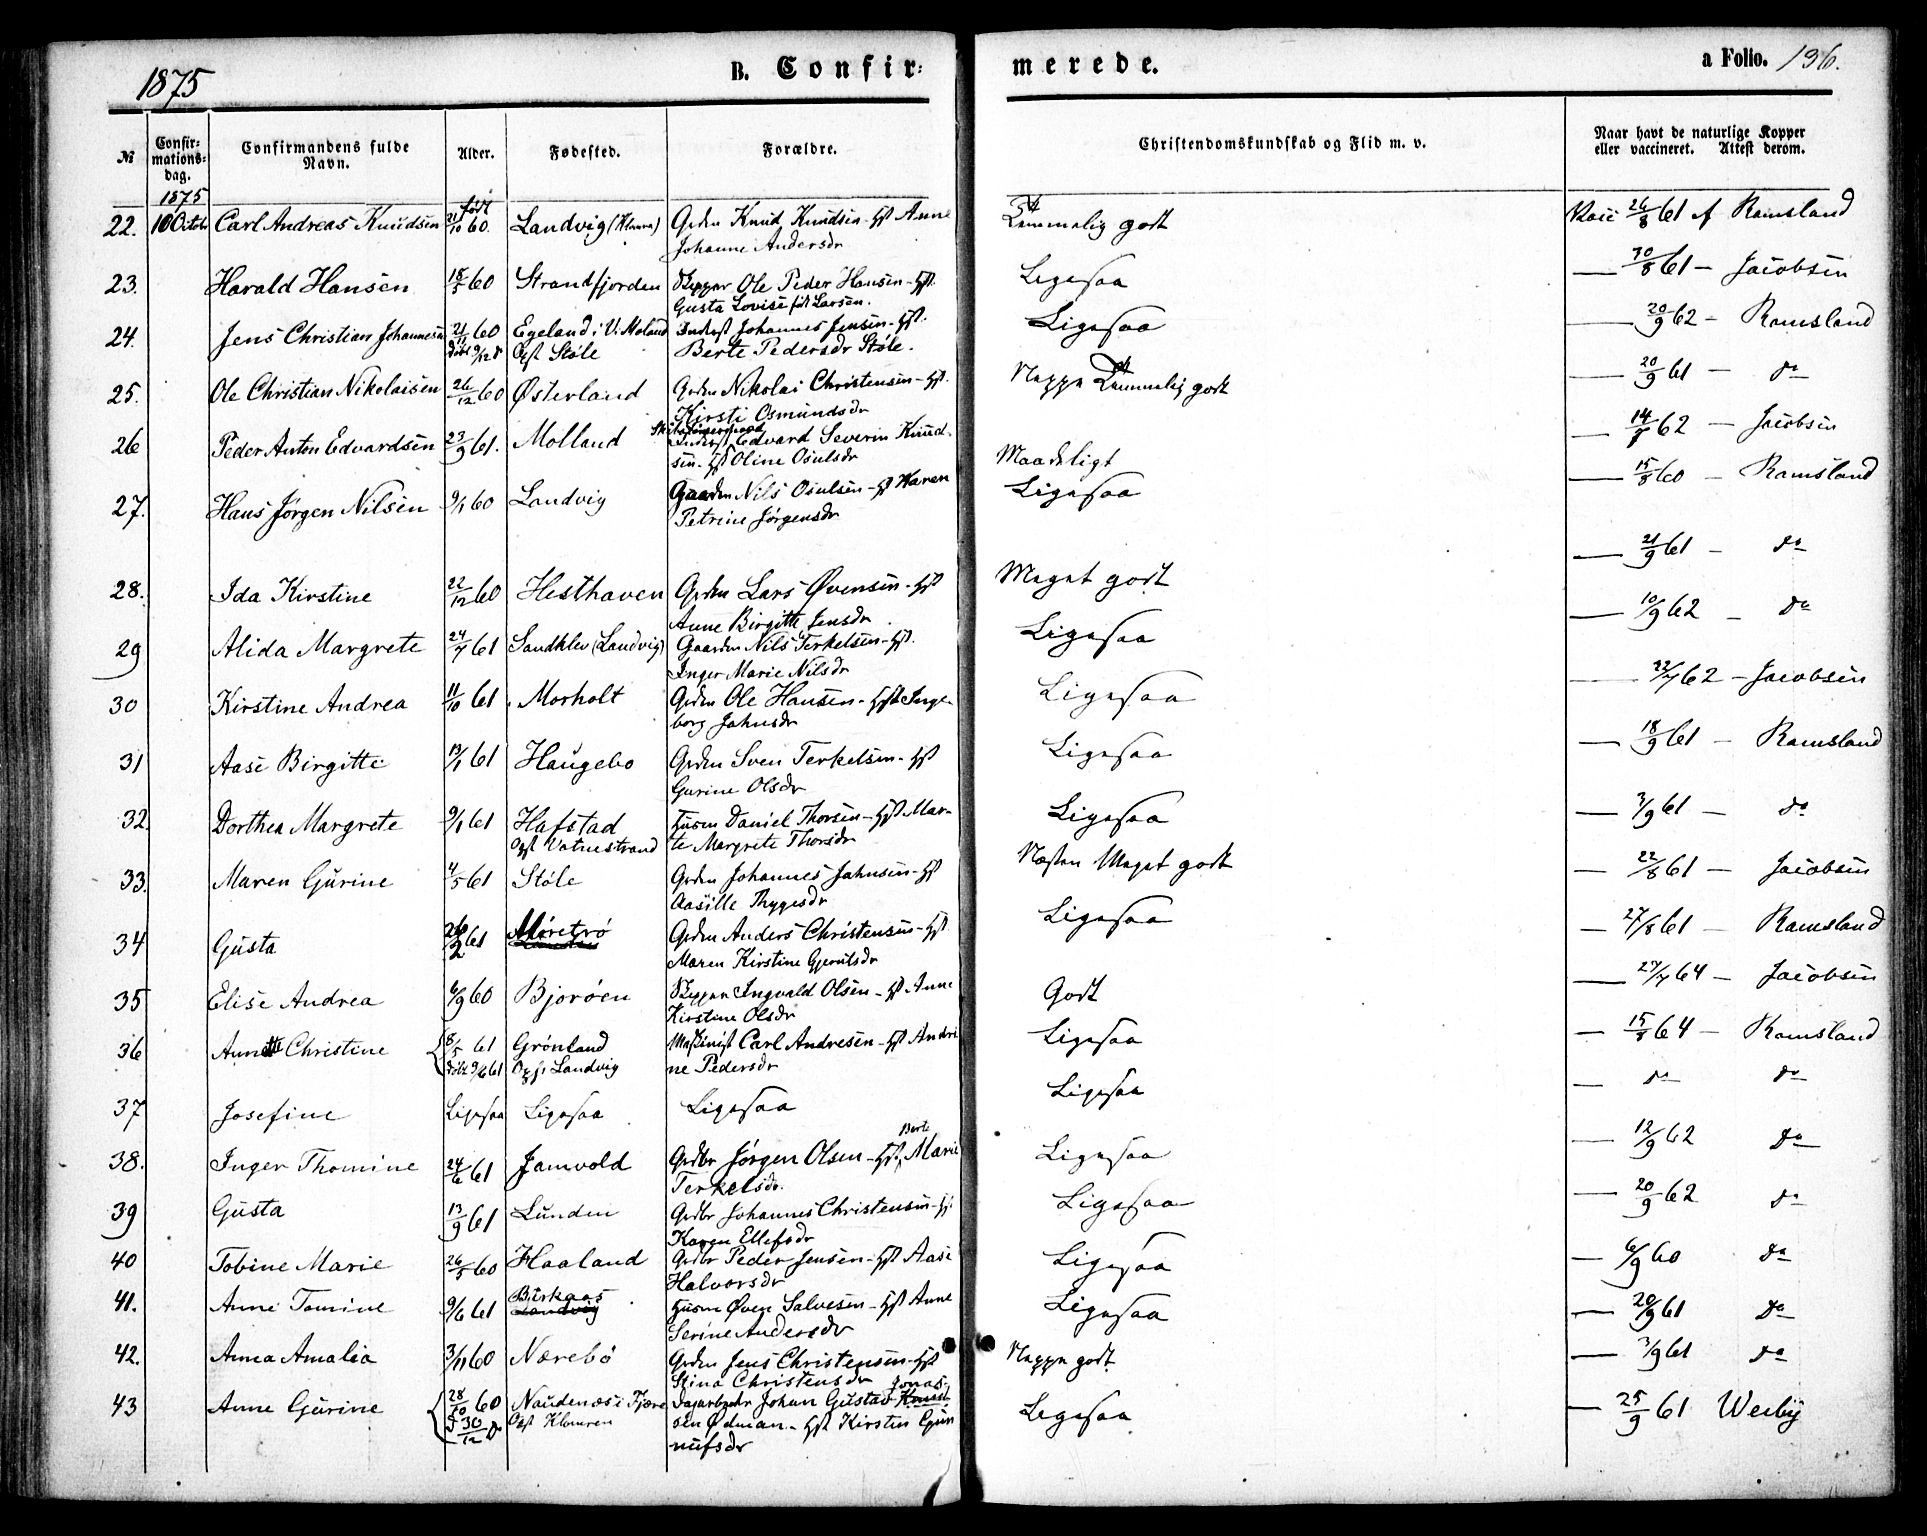 1875
B. Confir-
merede.
a Folio. 136.
№
Confir-
mations-
dag.
Confirmandens fulde
Navn.
Alder.
Fødested.
Forældre.
Christendomskundskab og Flid m. v.
Naar havt de naturlige Kopper
eller vaccineret. Attest derom.
1875
født
22. 10 Octobr Carl Andreas Knudsen 21/10 60. Landvig (Klamra) Grdm Knud Knudsen - Hst Anne Temmelig godt Vacc 26/8 61 af Ramsland
Johanne Andersdr
23. Harald Hansen 18/5 60 Strandfjorden Skipper Ole Peder Hansen - Hst. Ligesaa — 30/8 61 — Jacobsen
Gusta Lovise født Larsen.
24. Jens Christian Johannesen 21/11 60 Egeland i V. Moland Inderst Johannes Jensen - Hst. Ligesaa — 20/9 62 — Ramsland
døbt 9/12 Opf Støle Berte Pedersdr Støle.
25. Ole Christian Nikolaisen 26/12 60 Østerland Grdm Nikolai Christensen - Hst. Neppe Temmelig godt — 20/9 61 — do
Kirsti Osmundsdr
26 Peder Anton Edvardsen 23/9 61. Molland Inderst Edvard Severin Knud- Maadeligt — 14/8 62 — Jacobsen
sen - Hst Oline Osulsdr
27. Hans Jørgen Nilsen 9/1 60 Landvig Gaardm Nils Osulsen - Hst Karen Ligesaa — 15/8 60 — Ramsland
Petrine Jørgensdr
28. Ida Kirstine 22/12 60 Hesthaven Grdm Lars Øvensen - Hst Meget godt — 21/9 61 — do
Anne Birgitte Jensdr
29 Alida Margrete 24/7 61 Sandklev (Landvig) Gaardm Nils Terkelsen - Hst. Ligesaa — 10/9 62 — do
Inger Marie Nilsdr
30 Kirstine Andrea 11/10 61 Morholt Grdm Ole Hansen - Hst Inge- Ligesaa — 22/7 62 — Jacobsen
borg Jahnsdr
31 Aase Birgitte 13/1 61 Haugebo Grdm Sven Terkelsen - Hst Ligesaa — 18/9 61 — Ramsland
Gurine Olsdr
32. Dorthea Margrete 9/1 61 Hafstad Husm Daniel Thorsen - Hst Mar- Ligesaa — 3/9 61 — do
Opf Vatnestrand te Margrete Thorsdr
33. Maren Gurine 4/5 61 Støle Grdm Johannes Jahnsen - Hst Næsten Meget godt — 22/8 61 — Jacobsen
Aasille Thygesdr
34 Gusta 26/2 61 Møretrø Grdm Anders Christensen - Hst Ligesaa — 27/8 61 — Ramsland
Maren Kirstine Gjerulsdr
35 Elise Andrea 6/9 60 Bjorøen Skipper Ingvald Olsen - Hst Anne Godt — 27/7 64 — Jacobsen
Kirstine Olsdr
36 Anne Christine 8/5 61 Grønland Maskinist Carl Andresen - Hst Andri Ligesaa — 15/8 64 — Ramsland
døbt 9/6 61 Opf. Landvig ne Pedersdr
37 Josefine Ligesaa Ligesaa Ligesaa Ligesaa — do do
Berte
38. Inger Thomine 24/6 61 Jamvold Grdbr Jørgen Olsen - Hst. Marie Ligesaa — 12/9 62 do
Terkelsdr.
39 Gusta 13/9 61 Lunden Grdbr Johannes Christensen - Hst. Ligesaa — 20/9 62 do
Karen Ellefsdr
40 Tobine Marie 26/5 60 Haaland Grdbr Peder Jensen - Hst Aase Ligesaa — 6/9 60 do
Halvorsdr
41. Anne Tomine 9/6 61 Birkaas Husm Øven Salvesen - Hst Anne Ligesaa — 20/9 61 do
Landvig Serine Andersdr
42. Anna Amalia 3/11 60 Nærebø Grdm Jens Christensen - Hst Neppe godt — 3/9 61 do
Stina Christensdr
43 Anne Gurine 28/10 60 Naudenæs i Fjære Dagarbeider Johan Gustav Jonas- Ligesaa — 25/9 61 Weiby
d 30/12 Opf Klamren sen Ødman - Hst Kirsten Gun
nufsdr